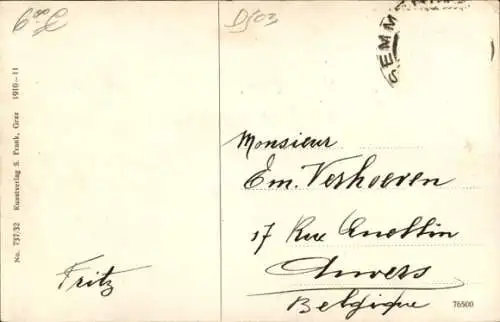 D503
SEMM
No. 737/32 Kunstverlag S. Frank, Graz 1910-11
Monsieur
Em. Verhoeven
17 Rue
Anvers
Belgique
Fritz
76500